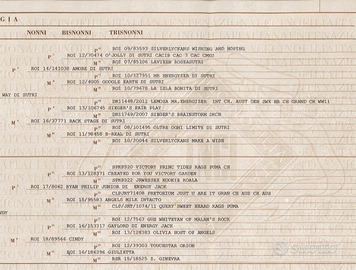 GIA
NONNI BISNONNI TRISNONNI
P° ROI 09/83593 SILVERLYCKANS WISHING AND HOPING
P° ROI 12/70474 O'JOLLY DI SUTRI CACIB CAC 3 CAC CMKU
M° ROI 07/85106 LAVIEEN ROSEASUTRI
P° ROI 14/141038 AMORE DI SUTRI
P° ROI 10/127951 MR ENERGYSER DI SUTRI
M° ROI 12/4005 GOOGLE EARTH DI SUTRI
M° ROI 10/79678 LA ISLA BONITA DI SUTRI
WAY DI SUTRI
P° DK11448/2011 LEMOSA MR.ENERGISER INT CH, AUST DEN SWX HR CH GRAND CH WW11
P° ROI 13/106745 SIEGER'S FAIR PLAY
M° DK11769/2007 SIEGER'S BRAINSTORM DKCH
M° ROI 16/37771 BACK STAGE DI SUTRI
P° ROI 08/101495 OLTRE OGNI LIMITE DI SUTRI
M° ROI 11/98458 B-REAL DI SUTRI
M° ROI 10/20044 SILVERLYCKANS MAKE A WISH
P° SPKP820 VICTORY PRINC TIDES RAGS PUMA CH
P° ROI 13/128371 CREATED FOR YOU VICTORY GARDEN
P° ROI 17/8062 RYAN PHILIP JUNIOR DI ENERGY JACK
M° ROI 15/95583 ANGELS MILK INTACTO
M° CLP/JRT/1074/11 QUERY SWEET HEARD RAGS PUMA
P° ROI 12/7567 GUE WHITETAN OF MALAN'S ROCK
P° ROI 16/153317 GAYLORD DI ENERGY JACK
M° ROI 13/128383 OLIVIA HOST OF ANGELS
M° ROI 18/89566 CINDY
P° ROI 12/39303 YOUCSTAR ORION
M° ROI 16/186396 GIULIETTA
M° RSR 15/18525 Z. GINEVRA